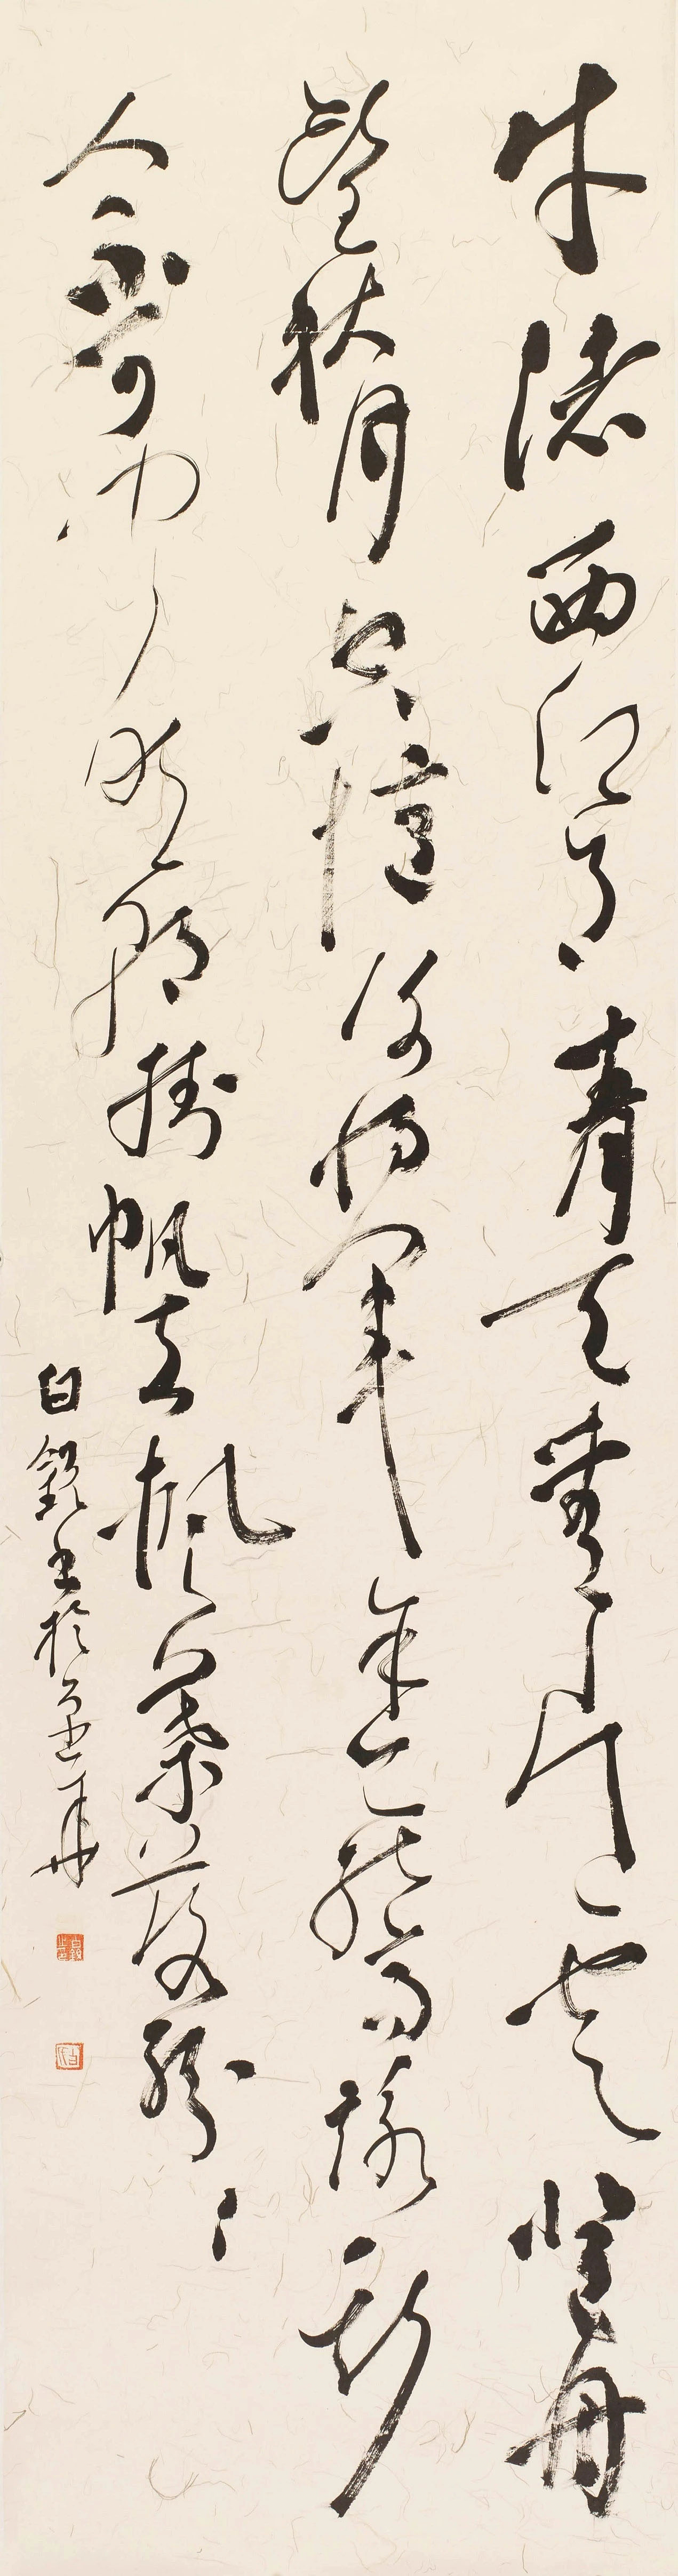 牛渚西江夜青天無片雲登舟
望秋月空憶謝將軍余亦能高詠斯
人不可聞明朝掛帆去楓葉落紛々
白銳書於